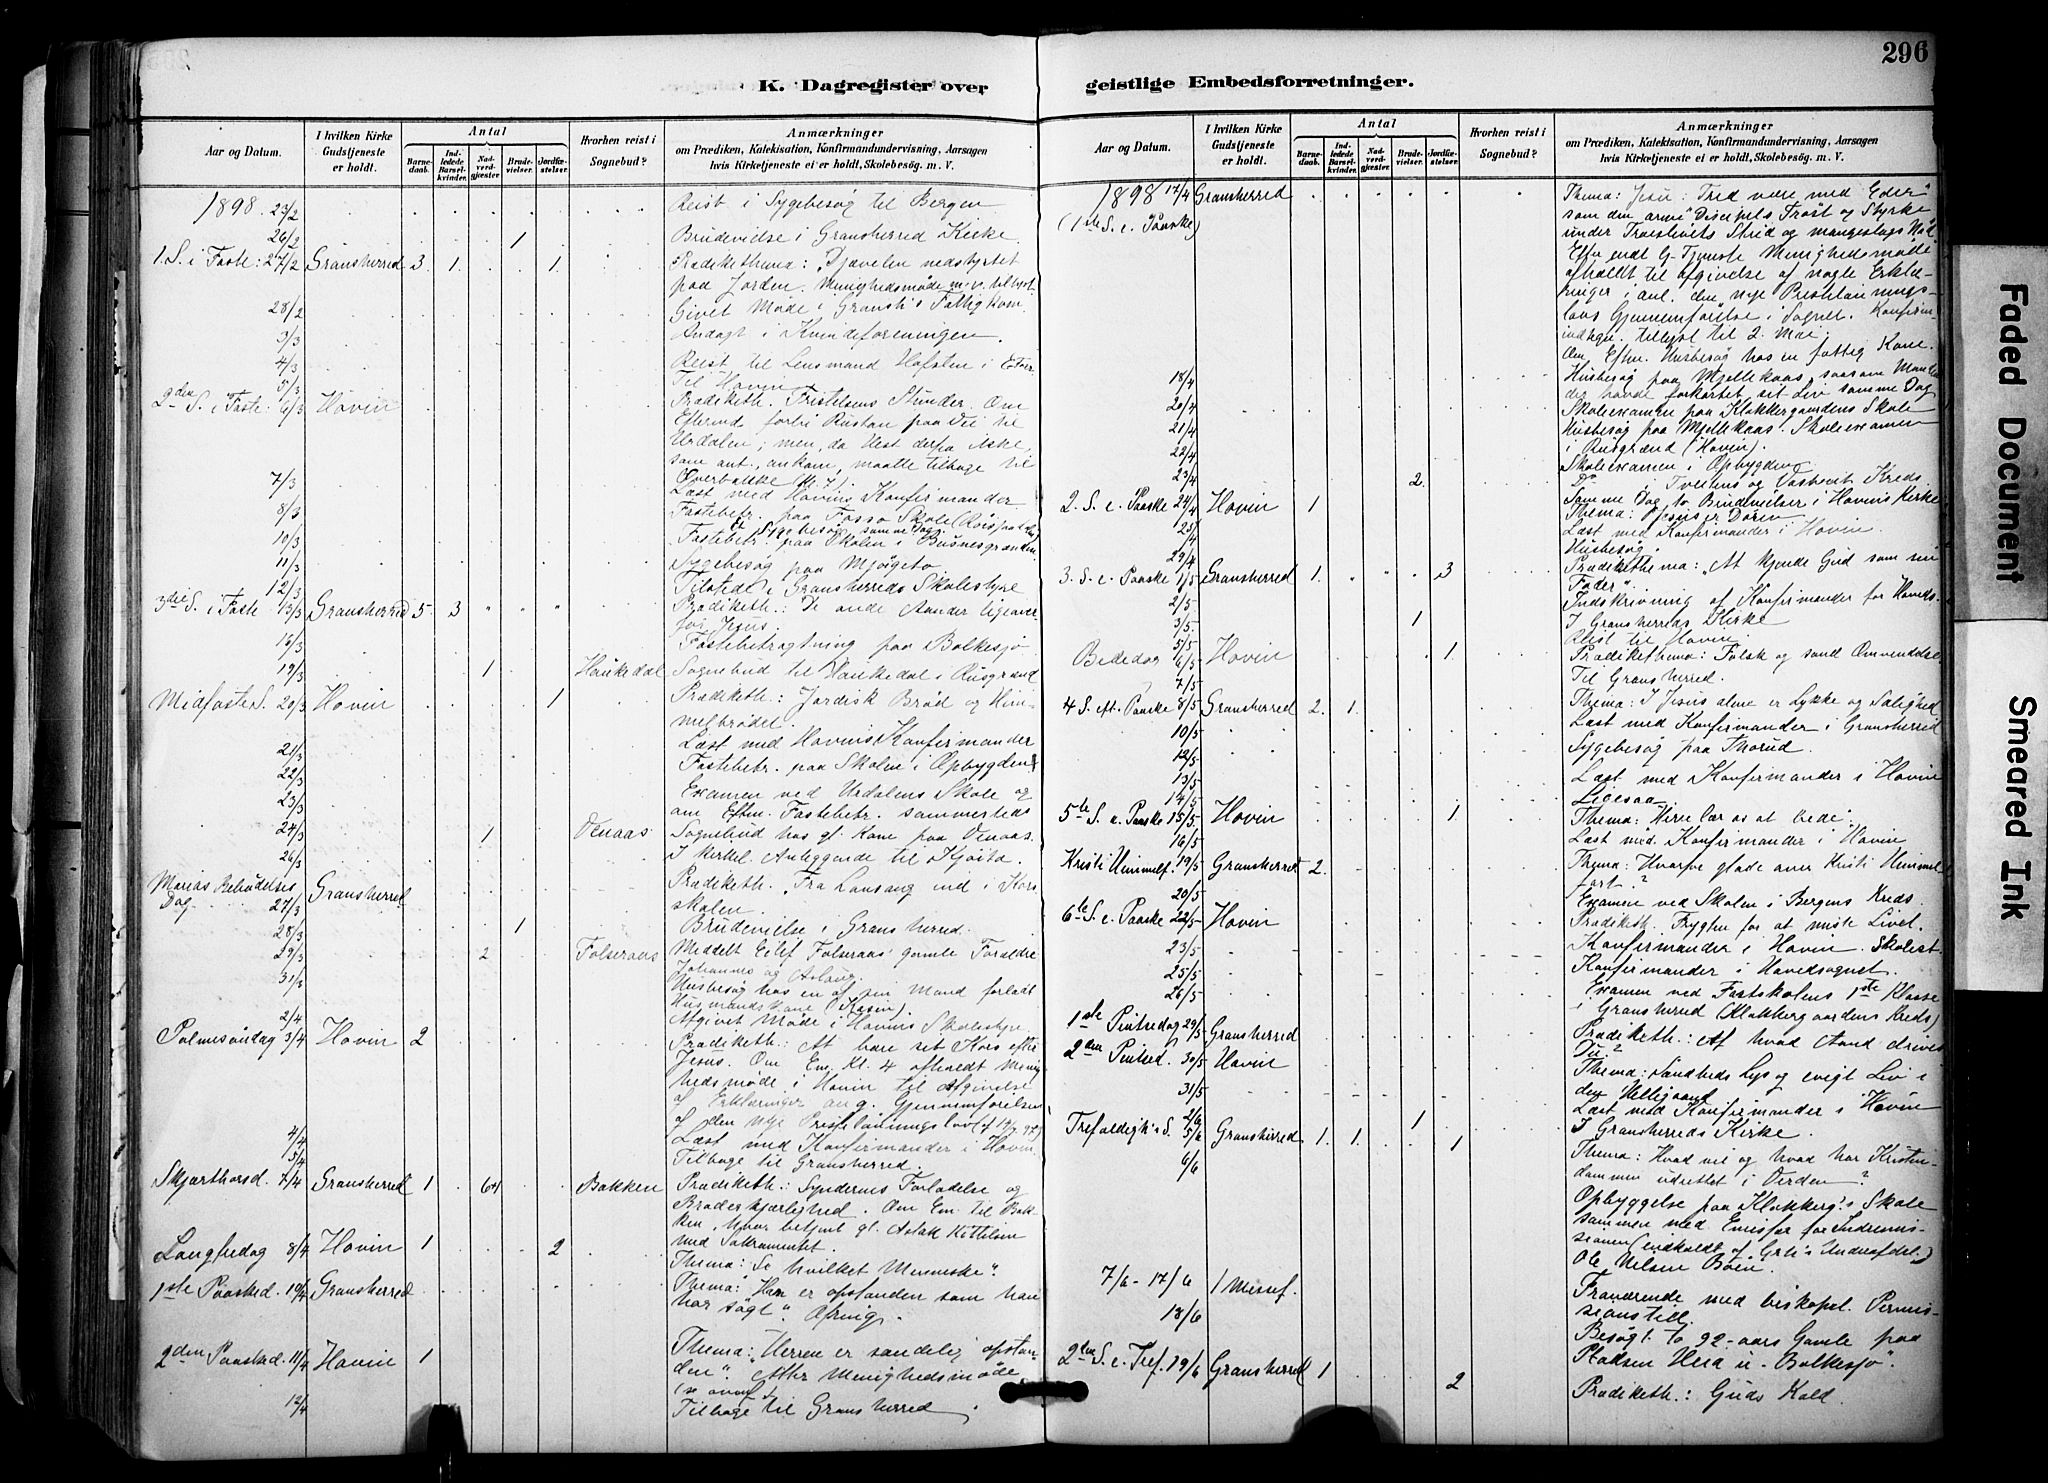 296
K. Dagregister over
geistlige Embedsforretninger.
Aar og Datum.
I hvilken Kirke
Gudstjeneste
er holdt.
Antal
Barne-
daab.
Ind-
ledede
Barsel-
kvinder.
Nad-
verd-
gjæster.
Brude-
vielser.
Jordfæ-
stelser.
Hvorhen reist i
Sognebud?
Anmærkninger
om Prædiken, Katekisation, Konfirmandundervisning, Aarsagen
hvis Kirketjeneste ei er holdt, Skolebesøg. m. V.
1898. 23/2 Reist i Sygebesøg til Bergen
26/2 1 Brudevielse i Gransherred Kirke.
1. S. i Faste: 27/2 Gransherred 3. 1. 1. Prædikethema: Djævelen nedstyrtet
paa Jorden. Menighedsmøde
28/2 Givet Møde i Gransh's Fattigkom.
3/3 Andagt i Kvindeforeningen.
4/3 Reist til Lensmand Hofsten i
5/3 Til Hovin
2den S. i Faste: 6/3 Hovin Prædiketh. Fristelsens Stunder. Om
Efterm. forbi Rustan paa Vei til
Urdalen; men, da Hest derfra
som ant., ankom, maatte tilbage til
Øverbakke
7/3 Læst med Hovins Konfirmander
8/3 Fastebetr. paa Fosso Skole
Sygebesøg samme Dag.
10/3 Fastebetr. paa Skolen i Busnesgrænden
11/3 Sygebesøg paa Mjøgeto.
12/3 Tilstede i Gransherreds Skolestyre
3die S. i Faste 13/3 Gransherred 5. 3 " " " Prædiketh.: De onde Aander ligeover-
for Jesus.
16/3 Fastebetragtning paa Bolkesjø
19/3 1 Haukedal Sognebud til Haukedal i Rusgrænd
Midfaste S. 20/3 Hovin 1 Prædiketh.: Jordisk Brød og Him-
melbrødet.
21/3 Læst med Hovins Konfirmander
22/3 Fastebetr. paa Skolen i Øpbygden
23/3 Examen ved Urdalens Skole og
om Eftm. Fastebetr. sammesteds
24/3 1 Venaas Sognebud hos gl. Kone paa Venaas.
26/3 I kirkel. Anliggende til
Marias Bebudelses
Dag 27/3 Gransherred Prædiketh. "Fra Lovsang ind i Kors
skolen.
28/3 1 Brudevielse i Gransherred.
29/3 2 Folseraas Meddelt Eilef Folseraas' gamle Forældre
Johannes og Aslaug.
31/3 Husbesøg hos en af sin Mand forladt
Husmandskone
2/4 Afgivet Møde i Hovins Skolestyre.
Palmesøndag 3/4 Hovin 2 Prædiketh.: At bære sit Kors efter
Jesus. Om Em. Kl. 4 afholdt Menig
hedsmøde i Hovin til Afgivelse
af Erklæringer ang. Gjennemførelsen
af den nye Presteløningslov
4/4 Læst med Konfirmander i Hovin
5/4 Tilbage til Gransherred.
Skjærthorsd. 7/4 Gransherred 1 64 Bakken Prædiketh.: Syndernes Forladelse og
Broderkjærlighed. Om Em. til Bak-
ken, hvor betjent gl. Aslak Kittilsen
med Sakramentet.
Langfredag 8/4 Hovin 1 2 Thema: Se hvilket Menneske".
1ste Paasked. 10/4 Gransherred Thema: "Han er opstanden som han
har sagt". Ofring.
2den Paasked. 11/4 Hovin 1 Thema: "Herren er sandelig opstan-
den". Atter Menighedsmøde
12/4 Tilbage til Gransherred.
Aar og Datum.
I hvilken Kirke
Gudstjeneste
er holdt.
Antal
Barne-
daab.
Ind-
ledede
Barsel-
kvinder.
Nad-
verd-
gjæster.
Brude-
vielser.
Jordfæ-
stelser.
Hvorhen reist i
Sognebud?
Anmærkninger
om Prædiken, Katekisation, Konfirmandundervisning, Aarsagen
hvis Kirketjeneste ei er holdt, Skolebesøg. m. V.
1898 17/4 Gransherred Thema: Jesu: Fred være med Eder"
(1ste S. e. Paaske) som den arme Discipels Trøst og Styrke
under Troeslivets Strid og mangeslags Nød.
Efter endt G-Tjeneste Menighedsmøde
afholdt til afgivelse af nogle Erklæ-
ringer i anl. den nye Presteløningslovs
Gjennemførelse i Sognet. Konfirm-
indtegn. tillyst til 2. Mai.
Om Eftm. Husbesøg hos en fattig Kone.
18/4 Husbesøg paa Mjellekaas, saasom Manden
der havde forkortet sit Liv samme Dag
20/4 Skoleexamen paa Klokkergaardens Skole
21/4 Husbesøg paa Mjellekaas. Skoleexamen
i Rusgrænd (Hovin).
22/4 Skoleexamen i Øpbygden
23/4 2. Do i Tveitens og Vastveit Kreds.
Samme Dag to Brudevielser i Hovins Kirke
2. S. e. Paaske 24/4 Hovin 1 Thema: Jesus er Døren
25/4 Læst med Konfirmander i Hovin
29/4 Husbesøg.
3. S. e. Paaske 1/5 Gransherred 1. 3 Prædikethema: "At kjende Gud som sin
Fader".
2/5 Indskrivning af Konfirmander for Hoveds.
3/5 1 I Gransherreds Kirke
5/5 Reist til Hovin.
Bededag 6/5 Hovin 1. Prædikethema: Falsk og sand Omvendelse.
7/5 Til Gransherred.
4 S. eft. Paaske 8/5 Gransherred 2. 1. Thema: I Jesus alene er Lykke og Salighed
10/5 Læst med Konfirmander i Gransherred
12/5 Sygebesøg paa Thorud.
13/5 Læst med Konfirmander i Hovin
14/5 Ligesaa
5te S. e. Paaske 15/5 Hovin 1 Thema: Herre lær os at bede.
16/5 Læst med Konfirmander i Hovin
Kristi Himmelf. 19/5 Gransherred 2. Thema: Hvorfor glade over Kristi Himmel
fart?
20/5 Examen ved Skolen i Bergens Kreds.
6te S. e. Paaske 22/5 Hovin Prædiketh. Frygten for at miste Livet.
23/5 Konfirmander i Hovin. Skolest.
25/5 Konfirmander i Hovedsognet.
26/5 Examen ved Fastskolens 1ste Klasse
i Gransherred (Klokkergaardens Kreds)
1ste Pintsedag 29/5 Gransherred Prædiketh.: Af hvad Aand drives
Du?
2den Pintsed. 30/5 Hovin Thema: Sandheds Lys og evigt Liv i
den Helligaand
31/5 Læst med Konfirmander i Hovin
2/6 1 I Gransherreds Kirke.
Trefoldigh's S. 5/6 Gransherred 1. 1. 1 Thema: Hvad vil og hvad har Kristen-
dommen udrettet i Verden?
6/6 Opbyggelse paa Klokkerg's Skole
sammen med Emissær for Indremis-
sionen (indkaldt af Grh's Underafdel.)
Ole Nilsen Bøen.
7/6-17/6 / Missef. Fraværende med biskopel. Permis-
sionstill.
18/6 Besøgt to 92-aars Gamle paa
Pladsen Heia u. Bolkesjø.
2den S. e. Tref. 19/6 Gransherred 1 2 Prædiketh.: Guds Kald.
Faded Document
Smeared Ink